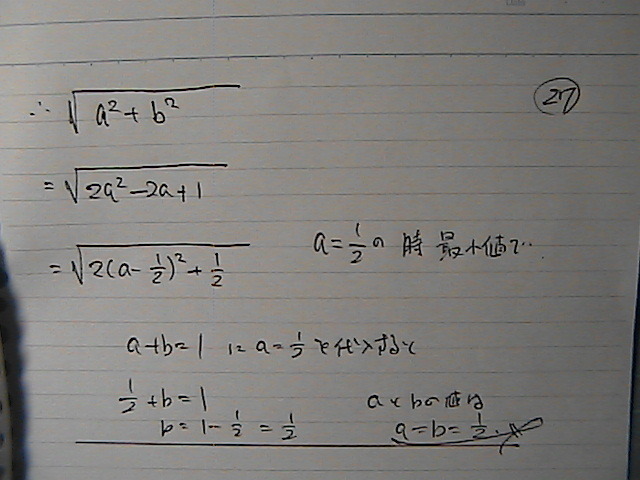 27
∴ √(a²+b²)
= √(2a²-2a+1)
= √(2(a-1/2)²+1/2) a=1/2の時最小値で…
a+b=1 に a=1/2を代入すると
1/2+b=1 aとbの値は
b=1-1/2=1/2 a=b=1/2